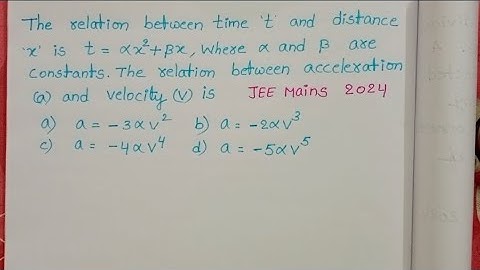 The relation between time 't' and distance
'x' is t = αx²+βx, where α and β are
constants. The relation between acceleration
(a) and velocity (v) is JEE Mains 2024
a) a = -3αv² b) a = -2αv³
c) a = -4αv⁴ d) a = -5αv⁵